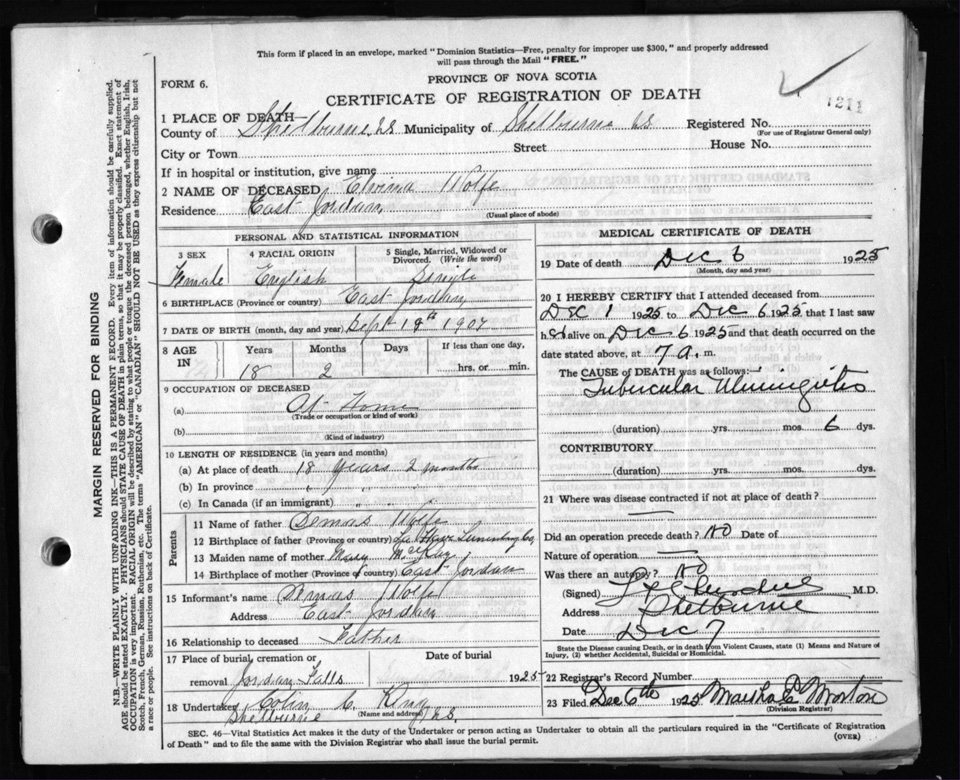 This form if placed in an envelope, marked "Dominion Statistics—Free, penalty for improper use $300," and properly addressed
will pass through the Mail "FREE."
PROVINCE OF NOVA SCOTIA
FORM 6.
CERTIFICATE OF REGISTRATION OF DEATH
1211
1 PLACE OF DEATH—
County of Shelburne Municipality of Shelburne Registered No.
(For use of Registrar General only)
City or Town Street House No.
If in hospital or institution, give name
2 NAME OF DECEASED Wolfe
Residence East Jordan
(Usual place of abode)
PERSONAL AND STATISTICAL INFORMATION
3 SEX 4 RACIAL ORIGIN 5 Single, Married, Widowed or Divorced. (Write the word)
Female English Single
6 BIRTHPLACE (Province or country) East Jordan
7 DATE OF BIRTH (month, day and year) Sept 1907
8 AGE IN Years Months Days If less than one day,
18 2 hrs. or min.
9 OCCUPATION OF DECEASED
(a) At Home
(Trade or occupation or kind of work)
(b)
(Kind of industry)
10 LENGTH OF RESIDENCE (in years and months)
(a) At place of death 18 years 2 months
(b) In province " " " "
(c) In Canada (if an immigrant)
Parents
11 Name of father Wolfe
12 Birthplace of father (Province or country) La Have Lunenburg Co
13 Maiden name of mother Mary McKay
14 Birthplace of mother (Province or country) East Jordan
15 Informant's name Wolfe
Address East Jordan
16 Relationship to deceased Father
17 Place of burial, cremation or Date of burial
removal Jordan Falls 1925
18 Undertaker Colin C. King
(Name and address)
Shelburne N.S.
MEDICAL CERTIFICATE OF DEATH
19 Date of death Dec 6 1925
(Month, day and year)
20 I HEREBY CERTIFY that I attended deceased from
Dec 1 1925 to Dec 6 1925, that I last saw
h er alive on Dec 6 1925 and that death occurred on
date stated above, at 7 a. m.
The CAUSE of DEATH was as follows:—
Tubercular Meningitis
(duration) yrs. mos. 6 dys.
CONTRIBUTORY
(duration) yrs. mos. dys.
21 Where was disease contracted if not at place of death?
Did an operation precede death? No Date of
Nature of operation
Was there an autopsy? No
(Signed) M.D.
Address Shelburne
Date Dec 7
State the Disease causing Death, or in death from Violent Causes, state (1) Means and Nature of
Injury, (2) whether Accidental, Suicidal or Homicidal.
22 Registrar's Record Number
23 Filed Dec 6th 1925 Morton
(Division Registrar)
SEC. 46—Vital Statistics Act makes it the duty of the Undertaker or person acting as Undertaker to obtain all the particulars required in the "Certificate of Registration
of Death" and to file the same with the Division Registrar who shall issue the burial permit. (OVER)
MARGIN RESERVED FOR BINDING
N.B.—WRITE PLAINLY WITH UNFADING INK—THIS IS A PERMANENT RECORD. Every item of information should be carefully supplied.
AGE should be stated EXACTLY. PHYSICIANS should STATE CAUSE OF DEATH in plain terms, so that it may be properly classified. Exact statement of
OCCUPATION is very important. RACIAL ORIGIN will be described by stating to what people or tongue the deceased person belonged, whether English, Irish,
Scotch, French, German, Russian, Ruthenian, etc. The terms "AMERICAN" or "CANADIAN" SHOULD NOT BE USED as they express citizenship but not
a race or people. See instructions on back of Certificate.